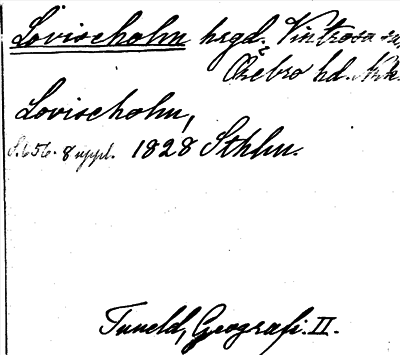 Loviseholm hrgd. Vintrosa sn,
Örebro hd. Nrk.
Loviseholm,
S. 656. 8 uppl. 1828 Sthlm.
Tuneld, Geografi. II.